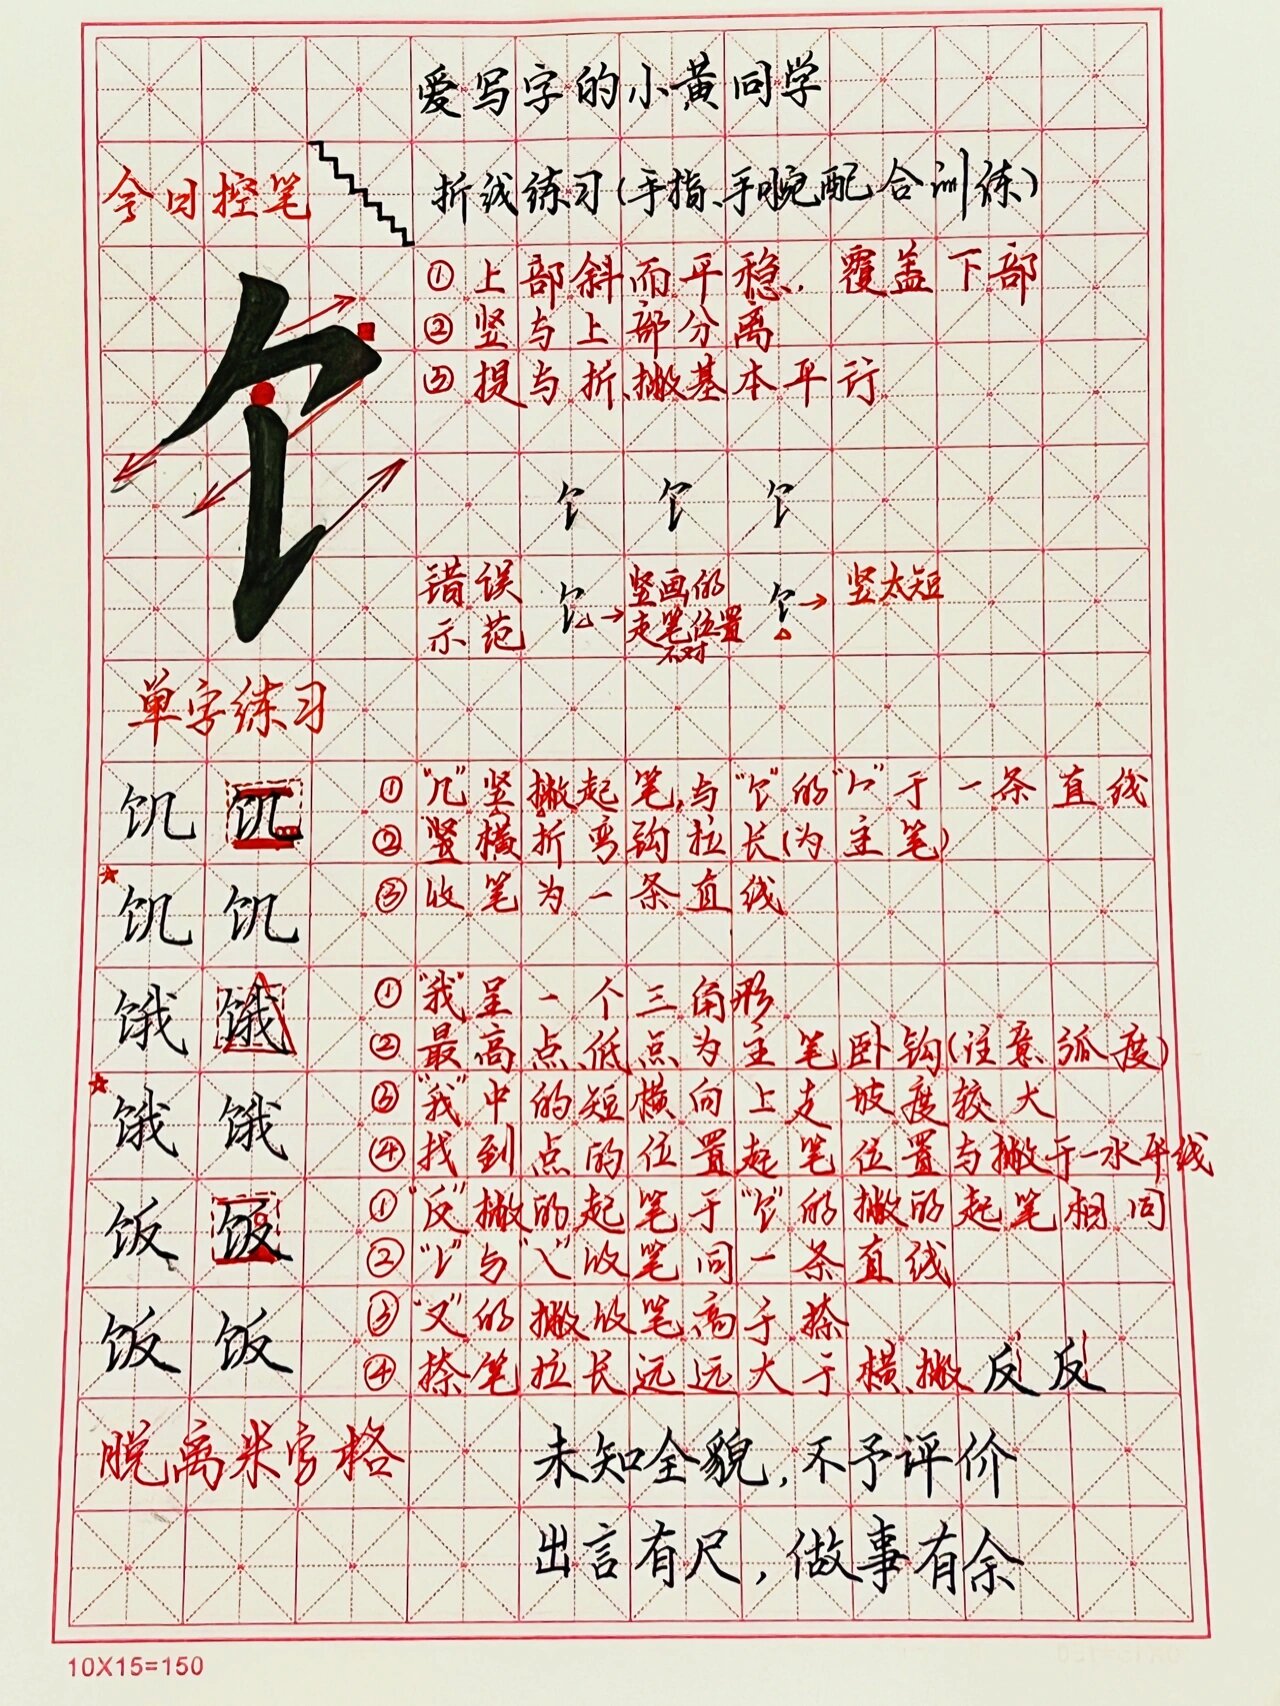 爱写字的小黄同学
今日控笔 折线练习(手指、手腕配合训练)
①上部斜而平稳,覆盖下部
②竖与上部分离
③提与折、撇基本平行
饣 饣 饣
饣
错误示范 饣→竖画的走笔位置不对 饣→竖太短
单字练习
饥 饥 ①“几”竖撇起笔,与“饣”的“𠂊”于一条直线
②“竖横折弯钩拉长(为主笔)
饥 饥 ③收笔为一条直线
饿 饿 ①“我”呈一个三角形
②最高点、低点为主笔卧钩(注意弧度)
饿 饿 ③“我”中的短横向上走坡度较大
④找到点的位置起笔位置与撇于一水平线
饭 饭 ①“反”撇的起笔于“饣”的撇的起笔相同
②“𠄌”与“㇏”收笔同一条直线
饭 饭 ③“又”的撇收笔高于捺
④捺笔拉长远远大于横、撇 反 反
脱离米字格 未知全貌,不予评价
出言有尺,做事有余
10X15=150